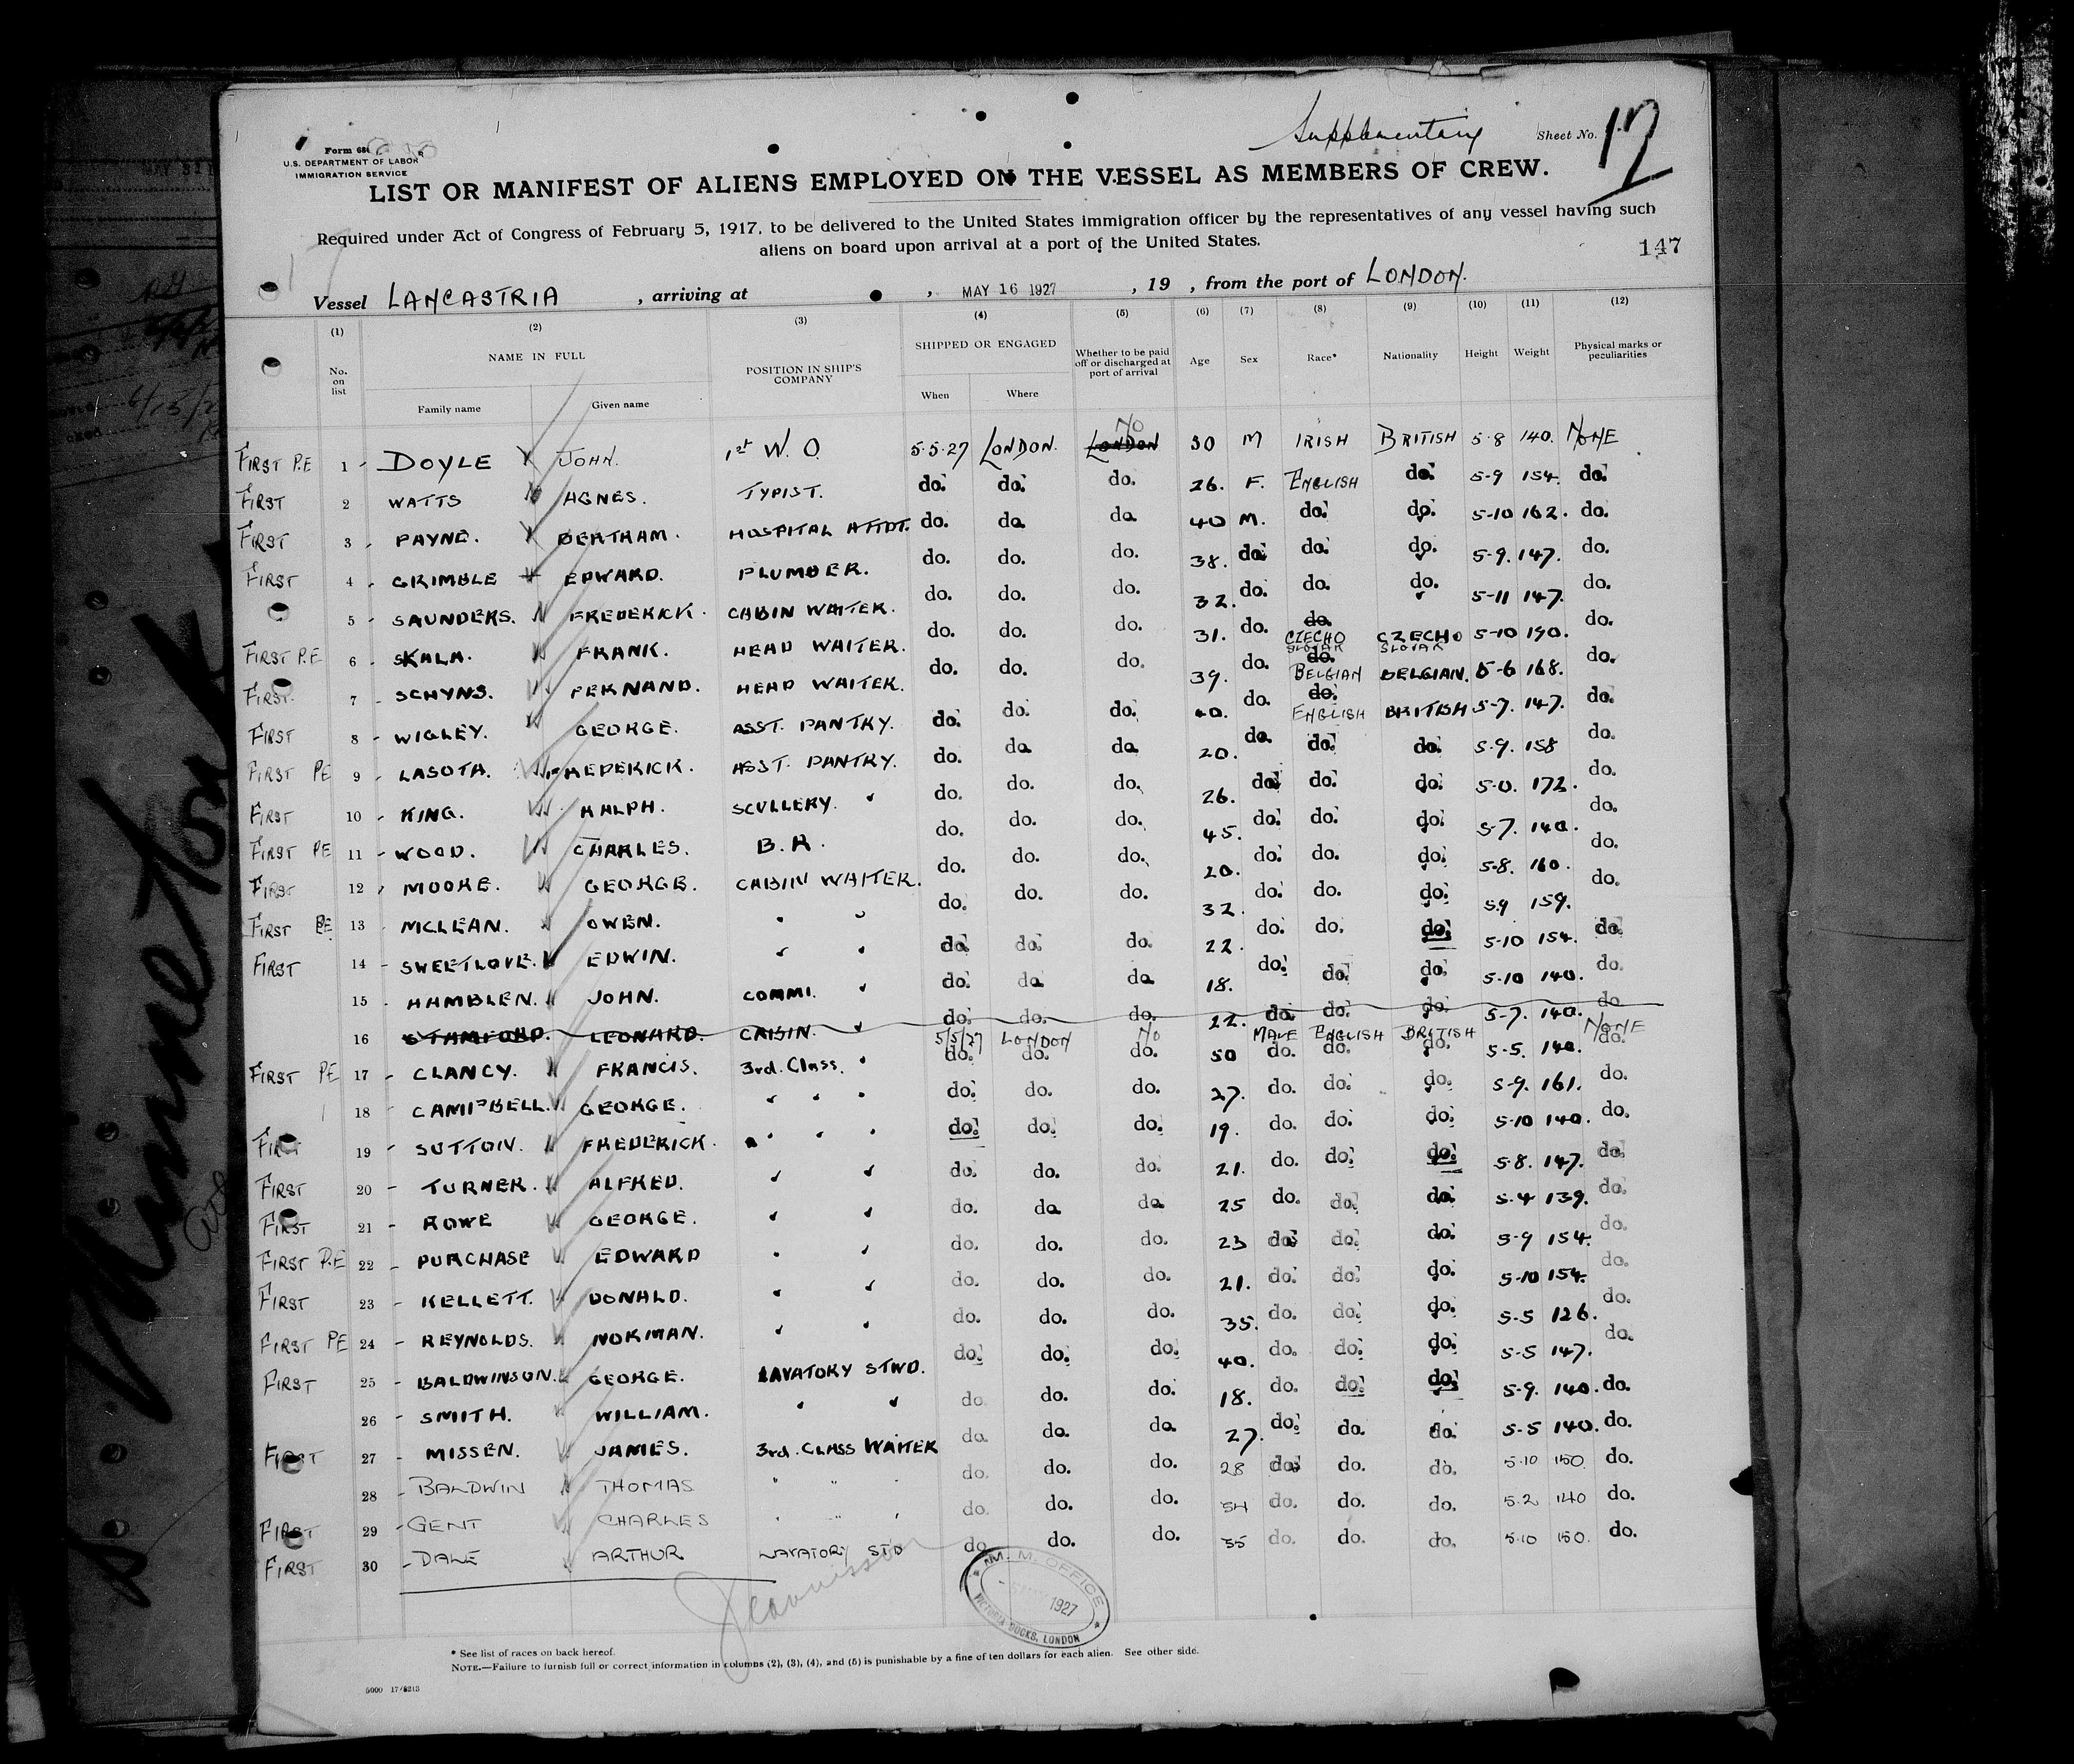 Supplementary
Sheet No. 17
Form 680
U.S. DEPARTMENT OF LABOR
IMMIGRATION SERVICE
LIST OR MANIFEST OF ALIENS EMPLOYED ON THE VESSEL AS MEMBERS OF CREW.
Required under Act of Congress of February 5, 1917, to be delivered to the United States immigration officer by the representatives of any vessel having such
aliens on board upon arrival at a port of the United States.
147
Vessel LANCASTRIA , arriving at , MAY 16 1927 , 19 , from the port of LONDON.
(1) (2) (3) (4) (5) (6) (7) (8) (9) (10) (11) (12)
No. on list NAME IN FULL Family name Given name POSITION IN SHIP'S COMPANY SHIPPED OR ENGAGED When Where Whether to be paid off or discharged at port of arrival Age Sex Race* Nationality Height Weight Physical marks or peculiarities
FIRST P.E 1 DOYLE JOHN. 1st W. O. 5.5.27 LONDON. LONDON NO 30 M IRISH BRITISH 5-8 140. NONE
FIRST 2 WATTS AGNES. TYPIST. do. do. do. 26. F. ENGLISH do. 5-9 154. do.
FIRST 3 PAYNE. BERTHAM. HOSPITAL ATTDT. do. do. do. 40 M. do. do. 5-10 162. do.
FIRST 4 GRIMBLE EDWARD. PLUMBER. do. do. do. 38. do. do. do. 5-9. 147. do.
5 SAUNDERS. FREDERICK. CABIN WAITER. do. do. do. 32. do. do. do. 5-11 147. do.
FIRST P.E 6 SKALA. FRANK. HEAD WAITER. do. do. do. 31. do. do. CZECHO SLOVAK CZECHO SLOVAK 5-10 190. do.
FIRST. 7 SCHYNS. FERNAND. HEAD WAITER. do. do. do. 39. do. do. BELGIAN BELGIAN. 5-6 168. do.
FIRST 8 WIGLEY. GEORGE. ASST. PANTRY. do. do. do. 40. do. do. ENGLISH BRITISH 5-7. 147. do.
FIRST PE 9 LASOTA. FREDERICK. ASST. PANTRY. do. do. do. 20. do. do. do. 5-9. 158 do.
FIRST 10 KING. RALPH. SCULLERY. " do. do. do. 26. do. do. do. 5-0. 172. do.
FIRST PE 11 WOOD. CHARLES. B.R. do. do. do. 45. do. do. do. 5-7. 140. do.
FIRST 12 MOORE. GEORGE. CABIN WAITER. do. do. do. 20. do. do. do. 5-8. 160. do.
FIRST PE 13 MCLEAN. OWEN. " " do. do. do. 32. do. do. do. 5-9 159. do.
FIRST 14 SWEETLOVE. EDWIN. " " do. do. do. 22. do. do. do. 5-10 154. do.
15 HAMBLEN. JOHN. COMMI. " do. do. do. 18. do. do. do. 5-10 140. do.
16 STAMFORD. LEONARD. CABIN. " do. do. do. 22. do. do. do. 5-7. 140. do
5/5/27 LONDON NO MALE ENGLISH BRITISH NONE
FIRST PE 17 CLANCY. FRANCIS. 3rd. Class. " do. do. do. 50 do. do. do. 5-5. 140. do.
18 CAMPBELL. GEORGE. " " " do. do. do. 27. do. do. do. 5-9. 161. do.
FIRST 19 SUTTON. FREDERICK. " " " do. do. do. 19. do. do. do. 5-10 140. do.
FIRST 20 TURNER. ALFRED. " " do. do. do. 21. do. do. do. 5-8. 147. do.
FIRST 21 ROWE GEORGE. " " do. do. do. 25 do. do. do. 5-4 139. do.
FIRST P.E 22 PURCHASE EDWARD " " do. do. do. 23 do. do. do. 5-9 154. do.
FIRST 23 KELLETT. DONALD. " " do. do. do. 21. do. do. do. 5-10 154. do.
FIRST PE 24 REYNOLDS. NORMAN. " " do. do. do. 35. do. do. do. 5-5 126. do.
FIRST 25 BALDWINSON. GEORGE. LAVATORY STWD. do. do. do. 40. do. do. do. 5-5 147. do.
26 SMITH. WILLIAM. " " do. do. do. 18. do. do. do. 5-9. 140. do.
FIRST 27 MISSEN. JAMES. 3rd. CLASS WAITER do. do. do. 27. do. do. do. 5-5 140. do.
28 BALDWIN THOMAS " " " do. do. do. 28 do. do. do. 5-10 150 do.
FIRST 29 GENT CHARLES " " " do. do. do. 54 do. do. do. 5-2 140 do.
FIRST 30 DALE ARTHUR LAVATORY STD do. do. do. 35 do. do. do. 5-10 150. do.
M. M. OFFICE
1927
VICTORIA DOCKS, LONDON
* See list of races on back hereof.
NOTE.—Failure to furnish full or correct information in columns (2), (3), (4), and (5) is punishable by a fine of ten dollars for each alien. See other side.
5000 17/8213